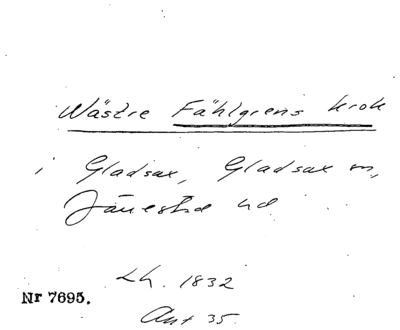 Wästre Fählgrens krok
i Gladsax, Gladsax sn,
Järrestad hd
Lh. 1832
Akt 35.
Nr 7695.